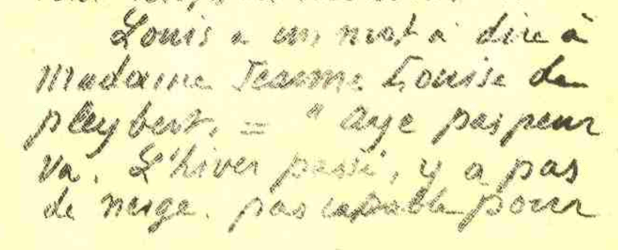 Louis a un mot à dire à
Madame Jeanne Louise de
pleybert. = " aye pas peur
va. L'hiver passé, y a pas
de neige. pas capable pour